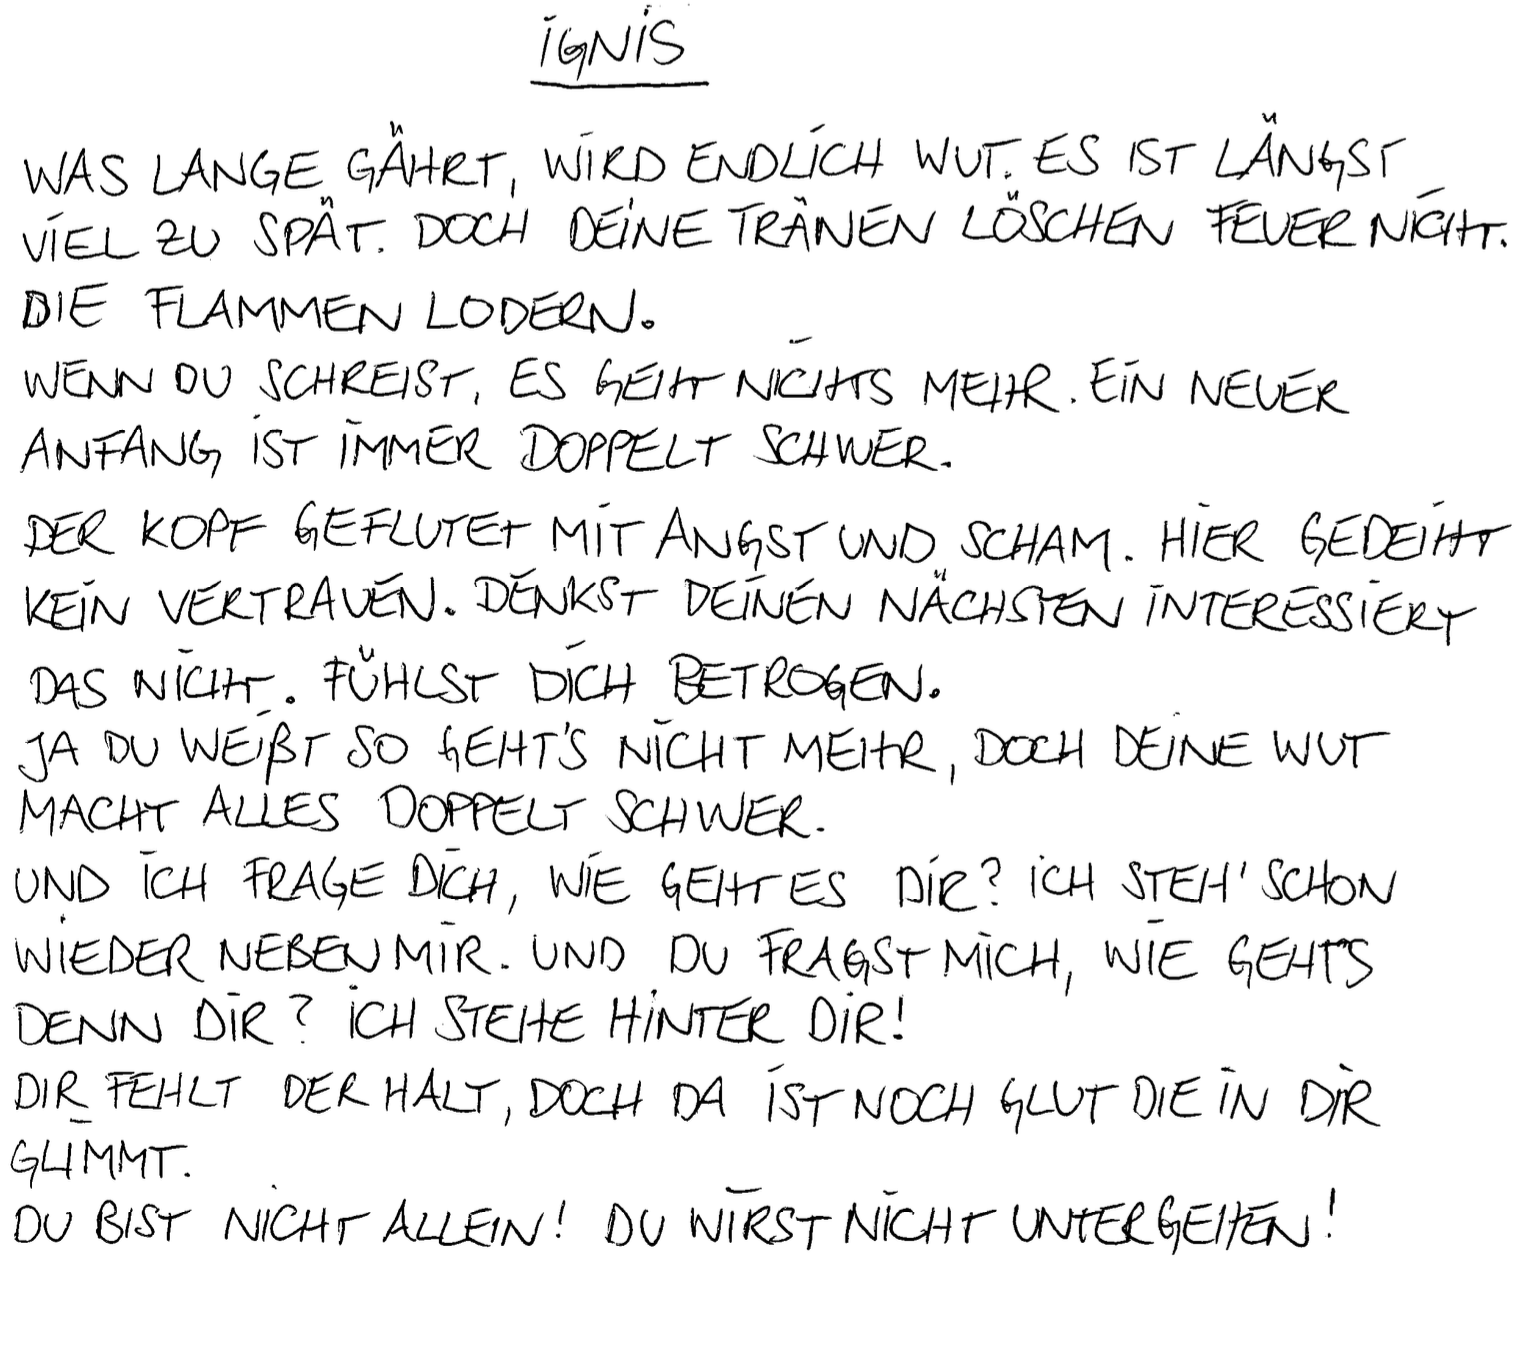 IGNIS
WAS LANGE GÄHRT, WIRD ENDLICH WUT. ES IST LÄNGST
VIEL ZU SPÄT. DOCH DEINE TRÄNEN LÖSCHEN FEUER NICHT.
DIE FLAMMEN LODERN.
WENN DU SCHREIST, ES GEHT NICHTS MEHR. EIN NEUER
ANFANG IST IMMER DOPPELT SCHWER.
DER KOPF GEFLUTET MIT ANGST UND SCHAM. HIER GEDEIHT
KEIN VERTRAUEN. DENKST DEINEN NÄCHSTEN INTERESSIERT
DAS NICHT. FÜHLST DICH BETROGEN.
JA DU WEIßT SO GEHT'S NICHT MEHR, DOCH DEINE WUT
MACHT ALLES DOPPELT SCHWER.
UND ICH FRAGE DICH, WIE GEHT ES DIR? ICH STEH' SCHON
WIEDER NEBEN MIR. UND DU FRAGST MICH, WIE GEHT'S
DENN DIR? ICH STEHE HINTER DIR!
DIR FEHLT DER HALT, DOCH DA IST NOCH GLUT DIE IN DIR
GLIMMT.
DU BIST NICHT ALLEIN! DU WIRST NICHT UNTERGEHEN!